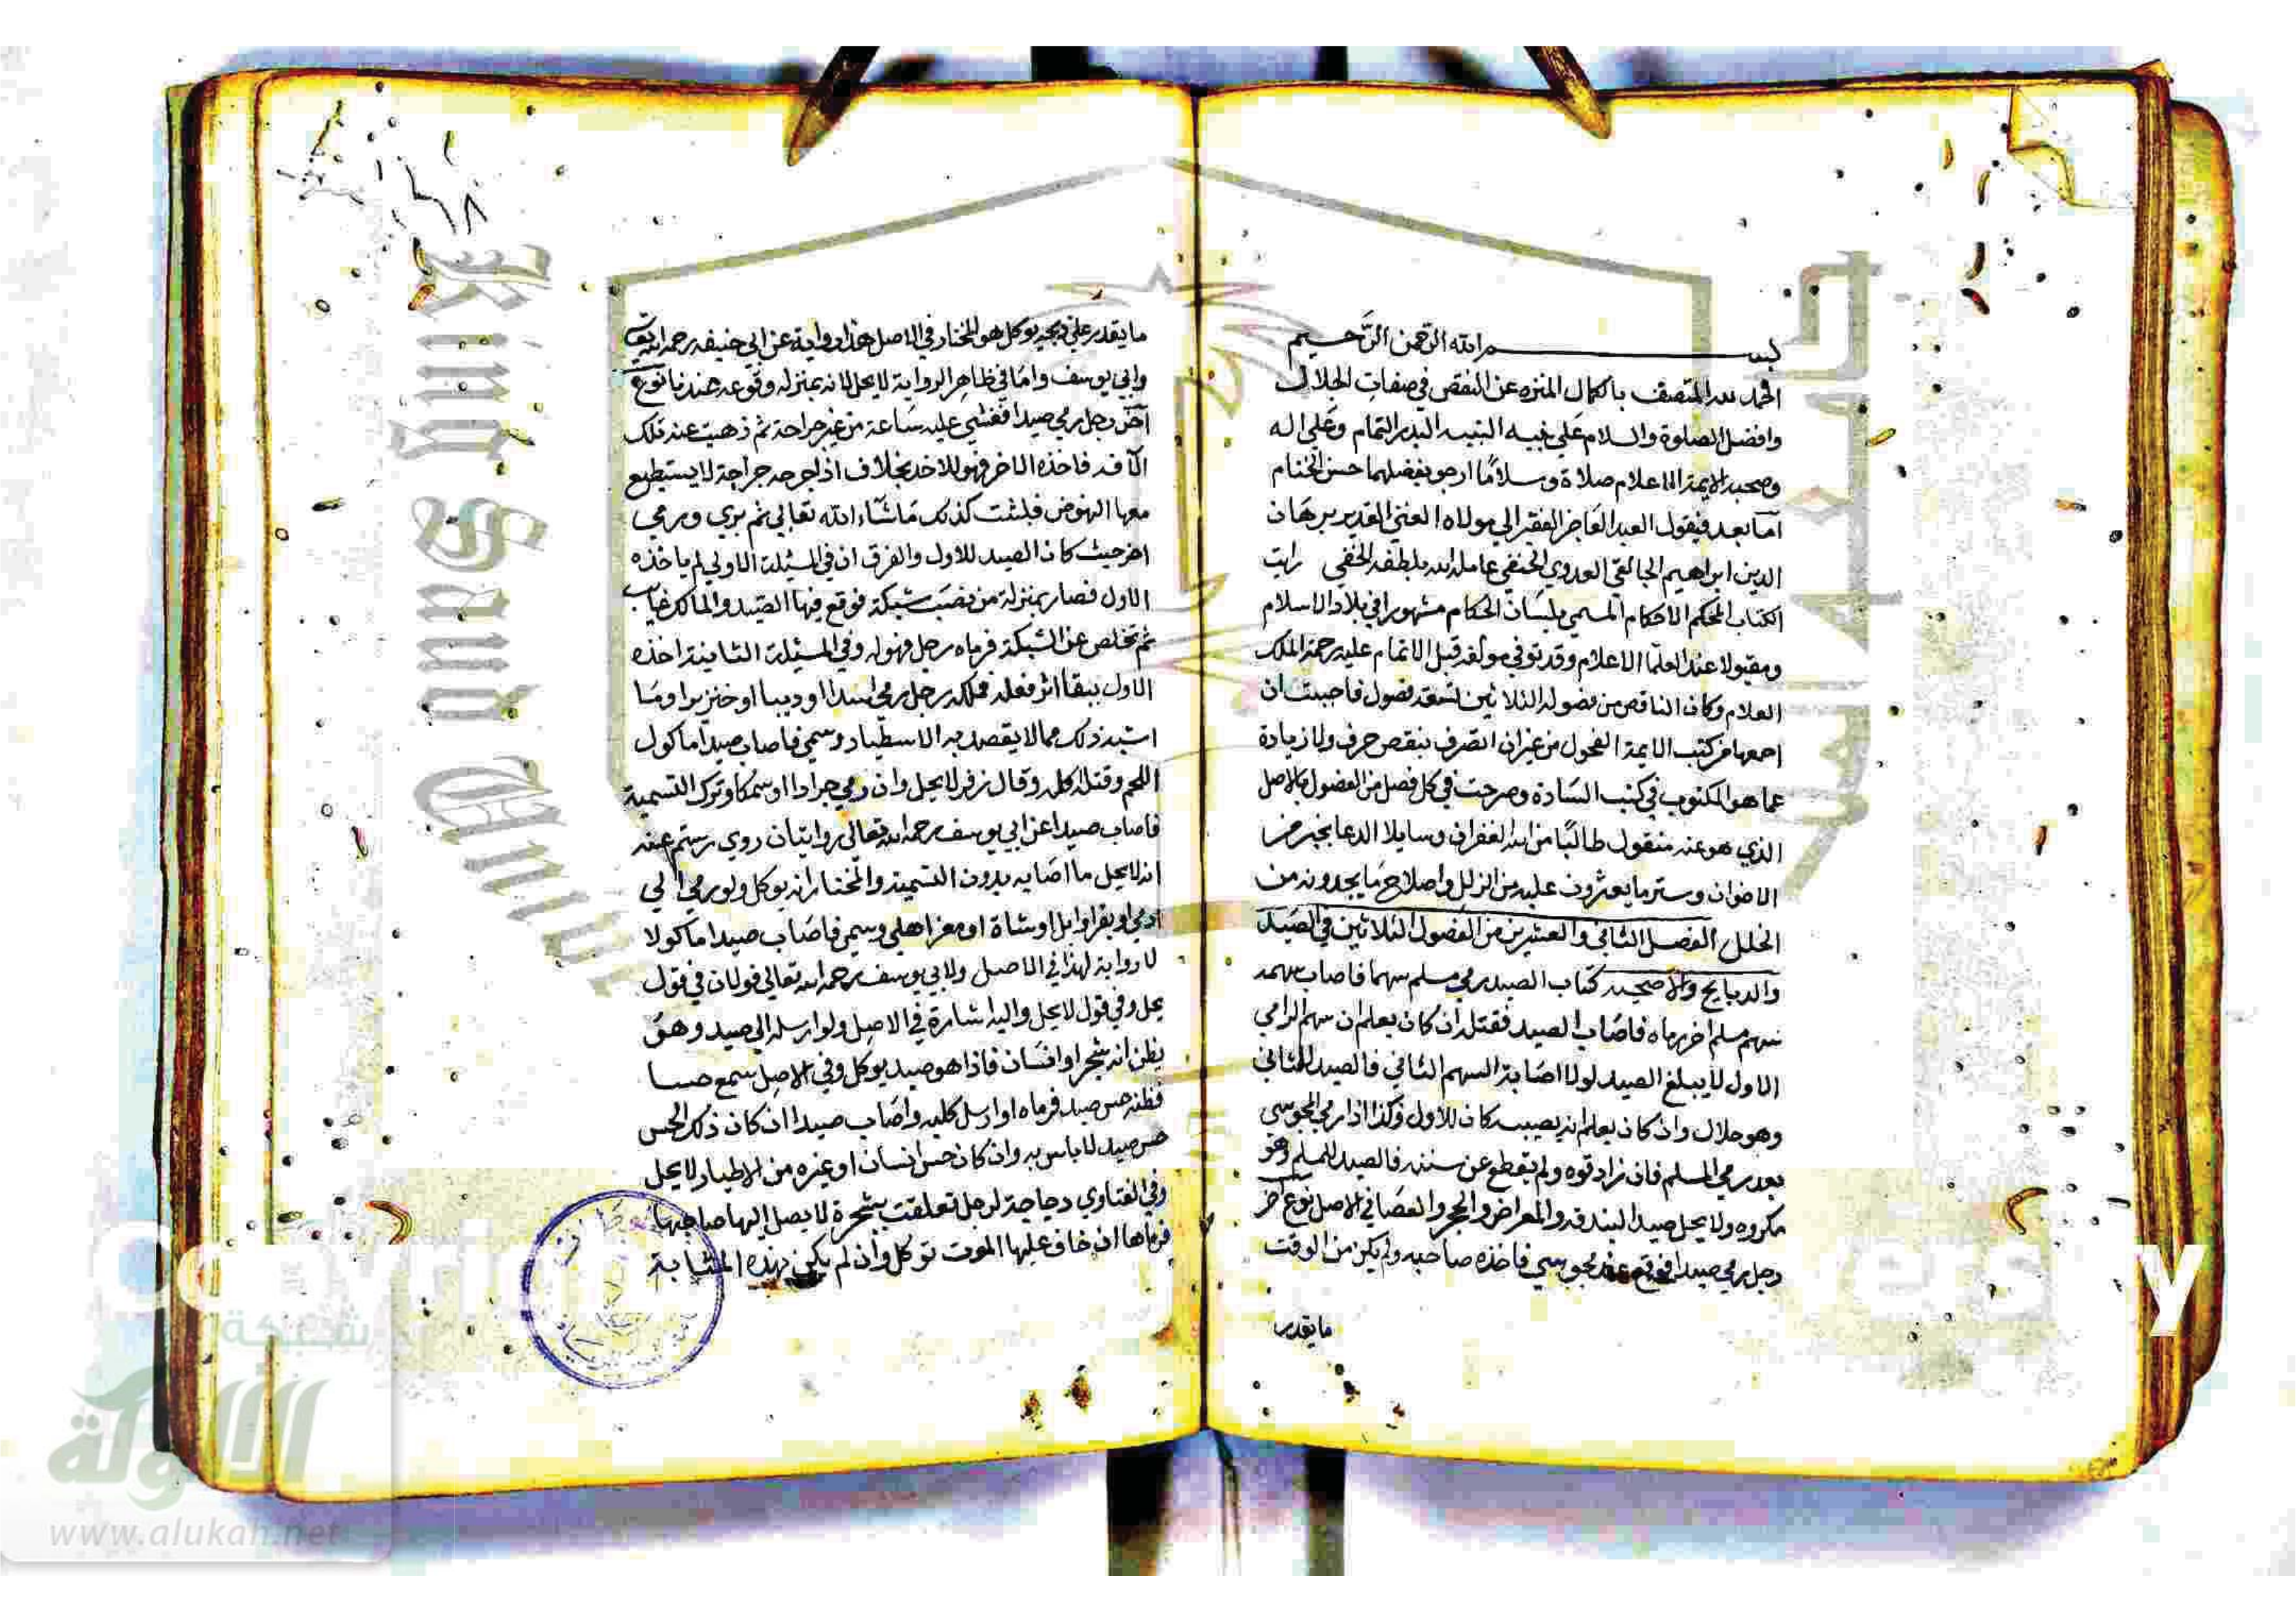 بسم الله الرحمن الرحيم
الحمد لله المتصف بالكمال المنزه عن النقص في صفات الجلال
وافضل الصلوة والسلام على نبيه النبيه البدر التمام وعلى اله
وصحبه الايمة الاعلام صلاة وسلاما ارجو بفضلهما حسن الختام
اما بعد فيقول العبد العاجز الفقير الي مولاه الغني القدير برهان
الدين ابراهيم الخالفي العدوي الحنفي عامله الله بلطفه الخفي رايت
الكتاب المحكم الاحكام المسمي بلسان الحكام مشهورا في بلاد الاسلام
ومقبولا عند العلما الاعلام وقد توفي مولفه قبل الاتمام عليه رحمة الملك
العلام وكان الناقص من فصوله الثلاثين تسعة فصول فاحببت ان
اجمعها من كتب الايمة الفحول من غير ان اتصرف بنقص حرف ولا زيادة
عما هو المكتوب في كتب السادة وصرحت في كل فصل من الفصول بالاصل
الذي هو عنه منقول طالبا من الله الغفران وسايلا الدعا بخير من
الاخوان وستر ما يعثرون عليه من الزلل واصلاح ما يجدونه من
الخلل الفصل الثاني والعشرين من الفصول الثلاثين في الصيد
والدبايح والاضحيه كتاب الصيد رمي مسلم سهما فاصاب سهمه
سهم مسلم اخر رماه فاصاب الصيد فقتله ان كان يعلم ان سهم الرامي
الاول لا يبلغ الصيد لولا اصابة السهم الثاني فالصيد للثاني
وهو حلال وان كان يعلم انه يصيبه كان للاول وكذا اذا رمي المجوسي
بعد رمي المسلم فان زاد قوه ولم يقطع عن سننه فالصيد للمسلم وهو
مكروه ولا يحل صيد البندقه والمعراض والحجر والعصا في الاصل نوع اخر
رجل رمي صيدا فوقع عند مجوسي فاخذه صاحبه ولم يكن من الوقت
ما يقدر
ما يقدر علي ذبحه يوكل هو المختار وفي الاصل هذا رواية عن ابي حنيفه رحمه الله
وابي يوسف واما في ظاهر الرواية لا يحل لانه بمنزله وقوعه عندنا نوع
اخر رجل رمي صيدا فغشي عليه ساعة من غير جراحة ثم ذهبت عنه تلك
الافه فاخذه الاخر فهو للاخذ بخلاف اذا جرحه جراحة لا يستطيع
معها النهوض فلبثت كذلك ما شاء الله تعالي ثم بري ورمي
اخر حيث كان الصيد للاول والفرق ان في المسئلة الاولي لم ياخذه
الاول فصار بمنزلة من نصب شبكة فوقع فيها الصيد والمالك غياب
ثم تخلص عن الشبكة فرماه رجل فهو له وفي المسئلة الثانية اخذه
الاول ببقا اثر فعله فملكه رجل رمي اسدا او ديبا او خنزيرا وما
اشبه ذلك مما لا يقصد به الاسطياد وسمي فاصاب صيدا ماكول
اللحم وقتله اكله وقال زفر لا يحل وان رمي جرادا او سمكا وترك التسمية
فاصاب صيدا عن ابي يوسف رحمه الله تعالي روايتان روي رستم عنه
انه لا يحل ما اصابه بدون التسمية والمختار انه يوكل ولو رمي الي
ادمي او بقر او ابل او شاة او معز اهلي وسمي فاصاب صيدا ماكولا
لا رواية لهذا في الاصل ولابي يوسف رحمه الله تعالي قولان في قول
يحل وفي قول لا يحل واليه اشارة في الاصل ولو ارسله الي صيد وهو
يظن انه شجر او انسان فاذا هو صيد يوكل وفي الاصل سمع حسا
فظنه حس صيد فرماه او ارسل كلبه واصاب صيدا ان كان ذلك الحس
حس صيد لا باس به وان كان حس انسان او غيره من الاطيار لا يحل
وفي الفتاوي دجاجة لرجل تعلقت بشجرة لا يصل اليها صاحبها
فرماها ان خاف عليها الموت توكل وان لم يكن بهذه المثابة
شبكة
الألوكة
www.alukah.net